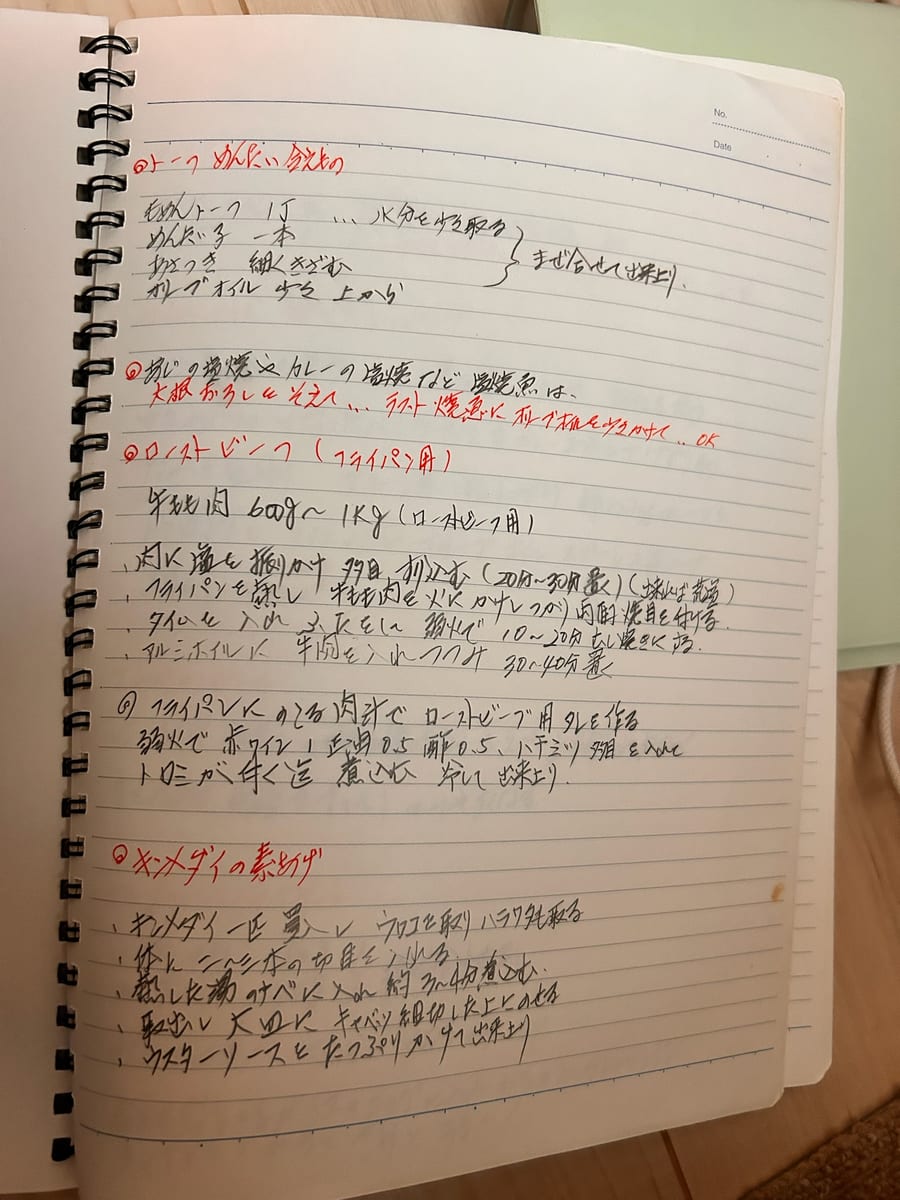 No.
Date
◎トーフ めんたい 合えもの
もめんトーフ 1丁 … 水分を少々取る
めんたい子 一本
あさつき 細くきざむ
オリーブオイル 少々 上から
まぜ合せて出来上り.
◎あじの塩焼や カレーの塩焼など 塩焼魚は、
大根おろしを そえて… ラスト 焼魚に オリーブオイルを少々かけて..OK
◎ローストビーフ (フライパン用)
牛もも肉 600g〜1Kg (ローストビーフ用)
、肉に塩を振りかけ 多目 打込む (20分〜30分置く) (出来れば常温)
、フライパンを熱し 牛もも肉を火に かけしっかり 両面 焼目を付ける.
、タイムを 入れ ふたをして 弱火で 10〜20分むし焼きにする.
、アルミホイルに 牛肉を入れつつみ 30〜40分置く
◎ フライパンに のこる肉汁で ローストビーフ用 タレを作る
弱火で 赤ワイン1 正油0.5 酢0.5、ハチミツ 多目 を入れて
トロミが付く迄 煮込む 冷して 出来上り.
◎キンメダイの素あげ
、キンメダイ 一匹 買入し ウロコを取り ハラワタも取る
、体に 二〜三本の切目を入れる.
、熱した湯のナベに入れ 約3〜4分煮込む.
、取出し 大皿に キャベツ 細切した上にのせる
、ウスターソースを たっぷりかけて出来上り